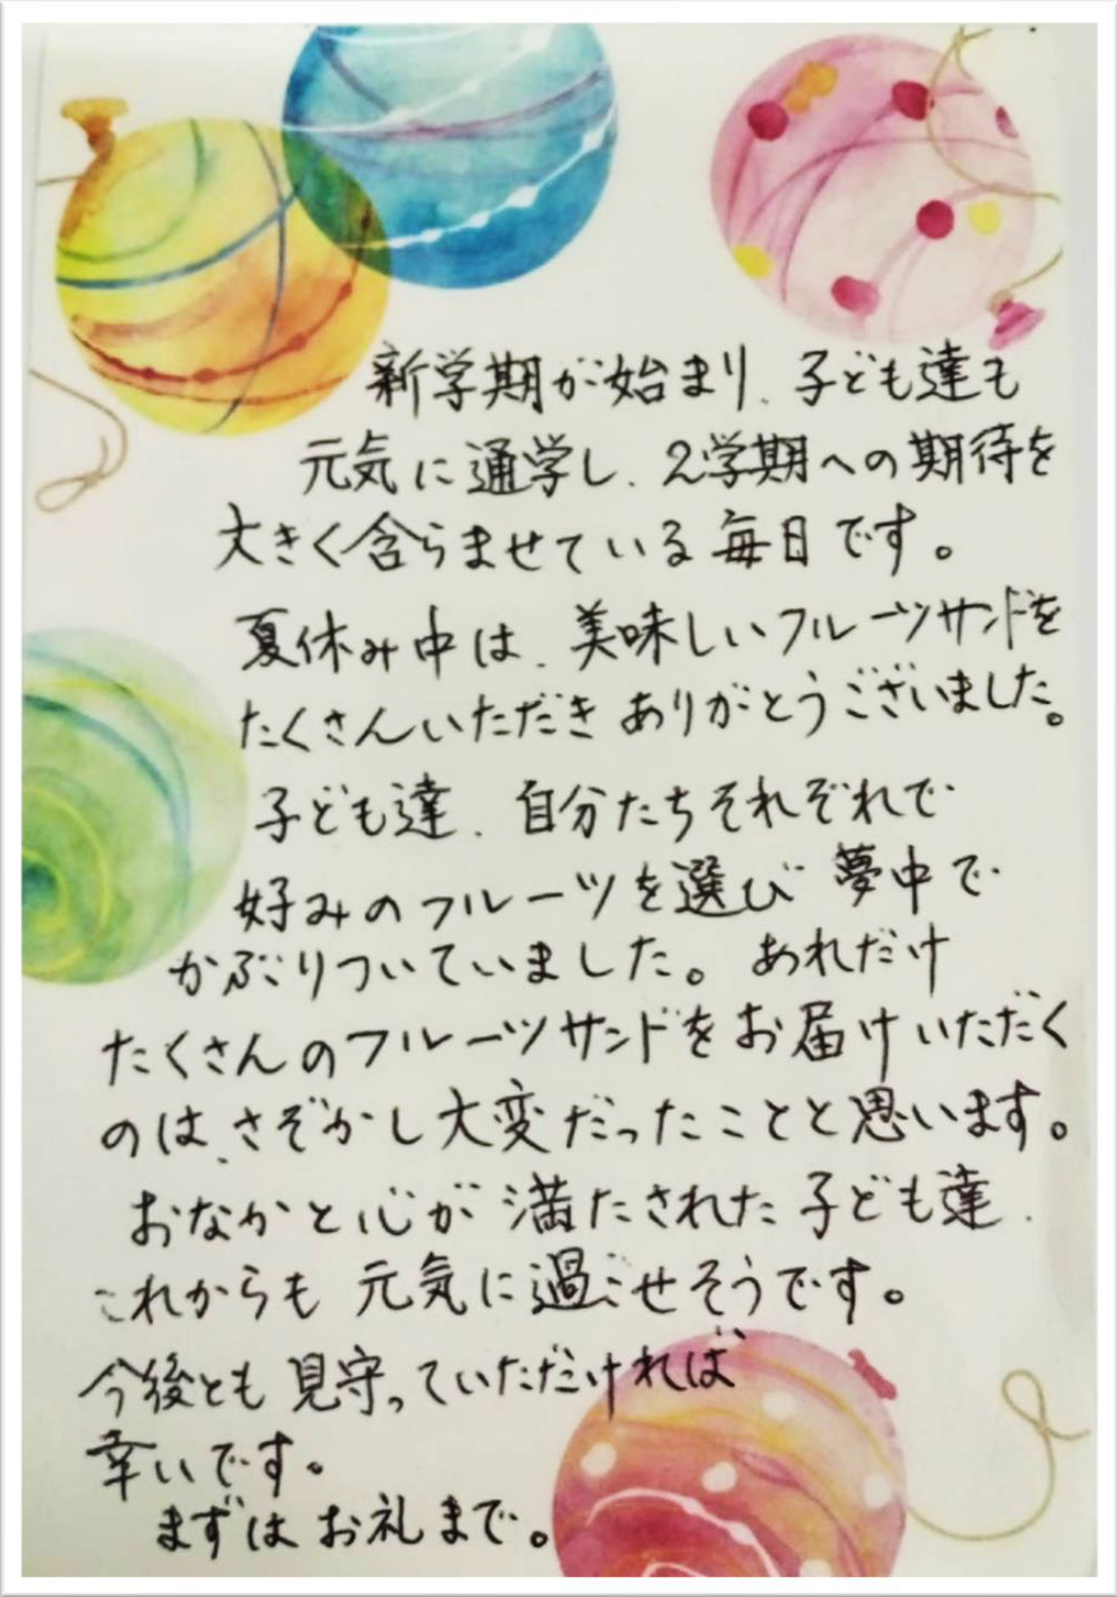 新学期が始まり、子ども達も
元気に通学し、2学期への期待を
大きく含らませている毎日です。
夏休み中は、美味しいフルーツサンドを
たくさんいただきありがとうございました。
子ども達、自分たちそれぞれで
好みのフルーツを選び夢中で
かぶりついていました。あれだけ
たくさんのフルーツサンドをお届けいただく
のは、さぞかし大変だったことと思います。
おなかと心が満たされた子ども達、
これからも元気に過ごせそうです。
今後とも見守っていただければ
幸いです。
まずはお礼まで。